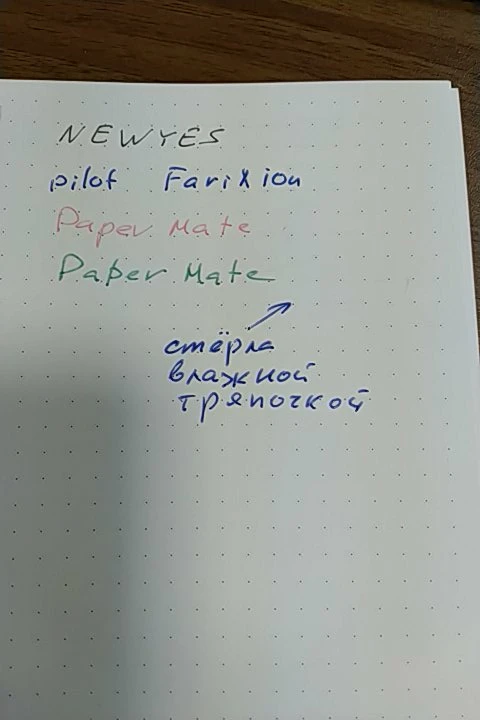 NEWYES
pilot FariXion
Paper Mate
Paper Mate
стёрла
влажной
тряпочкой